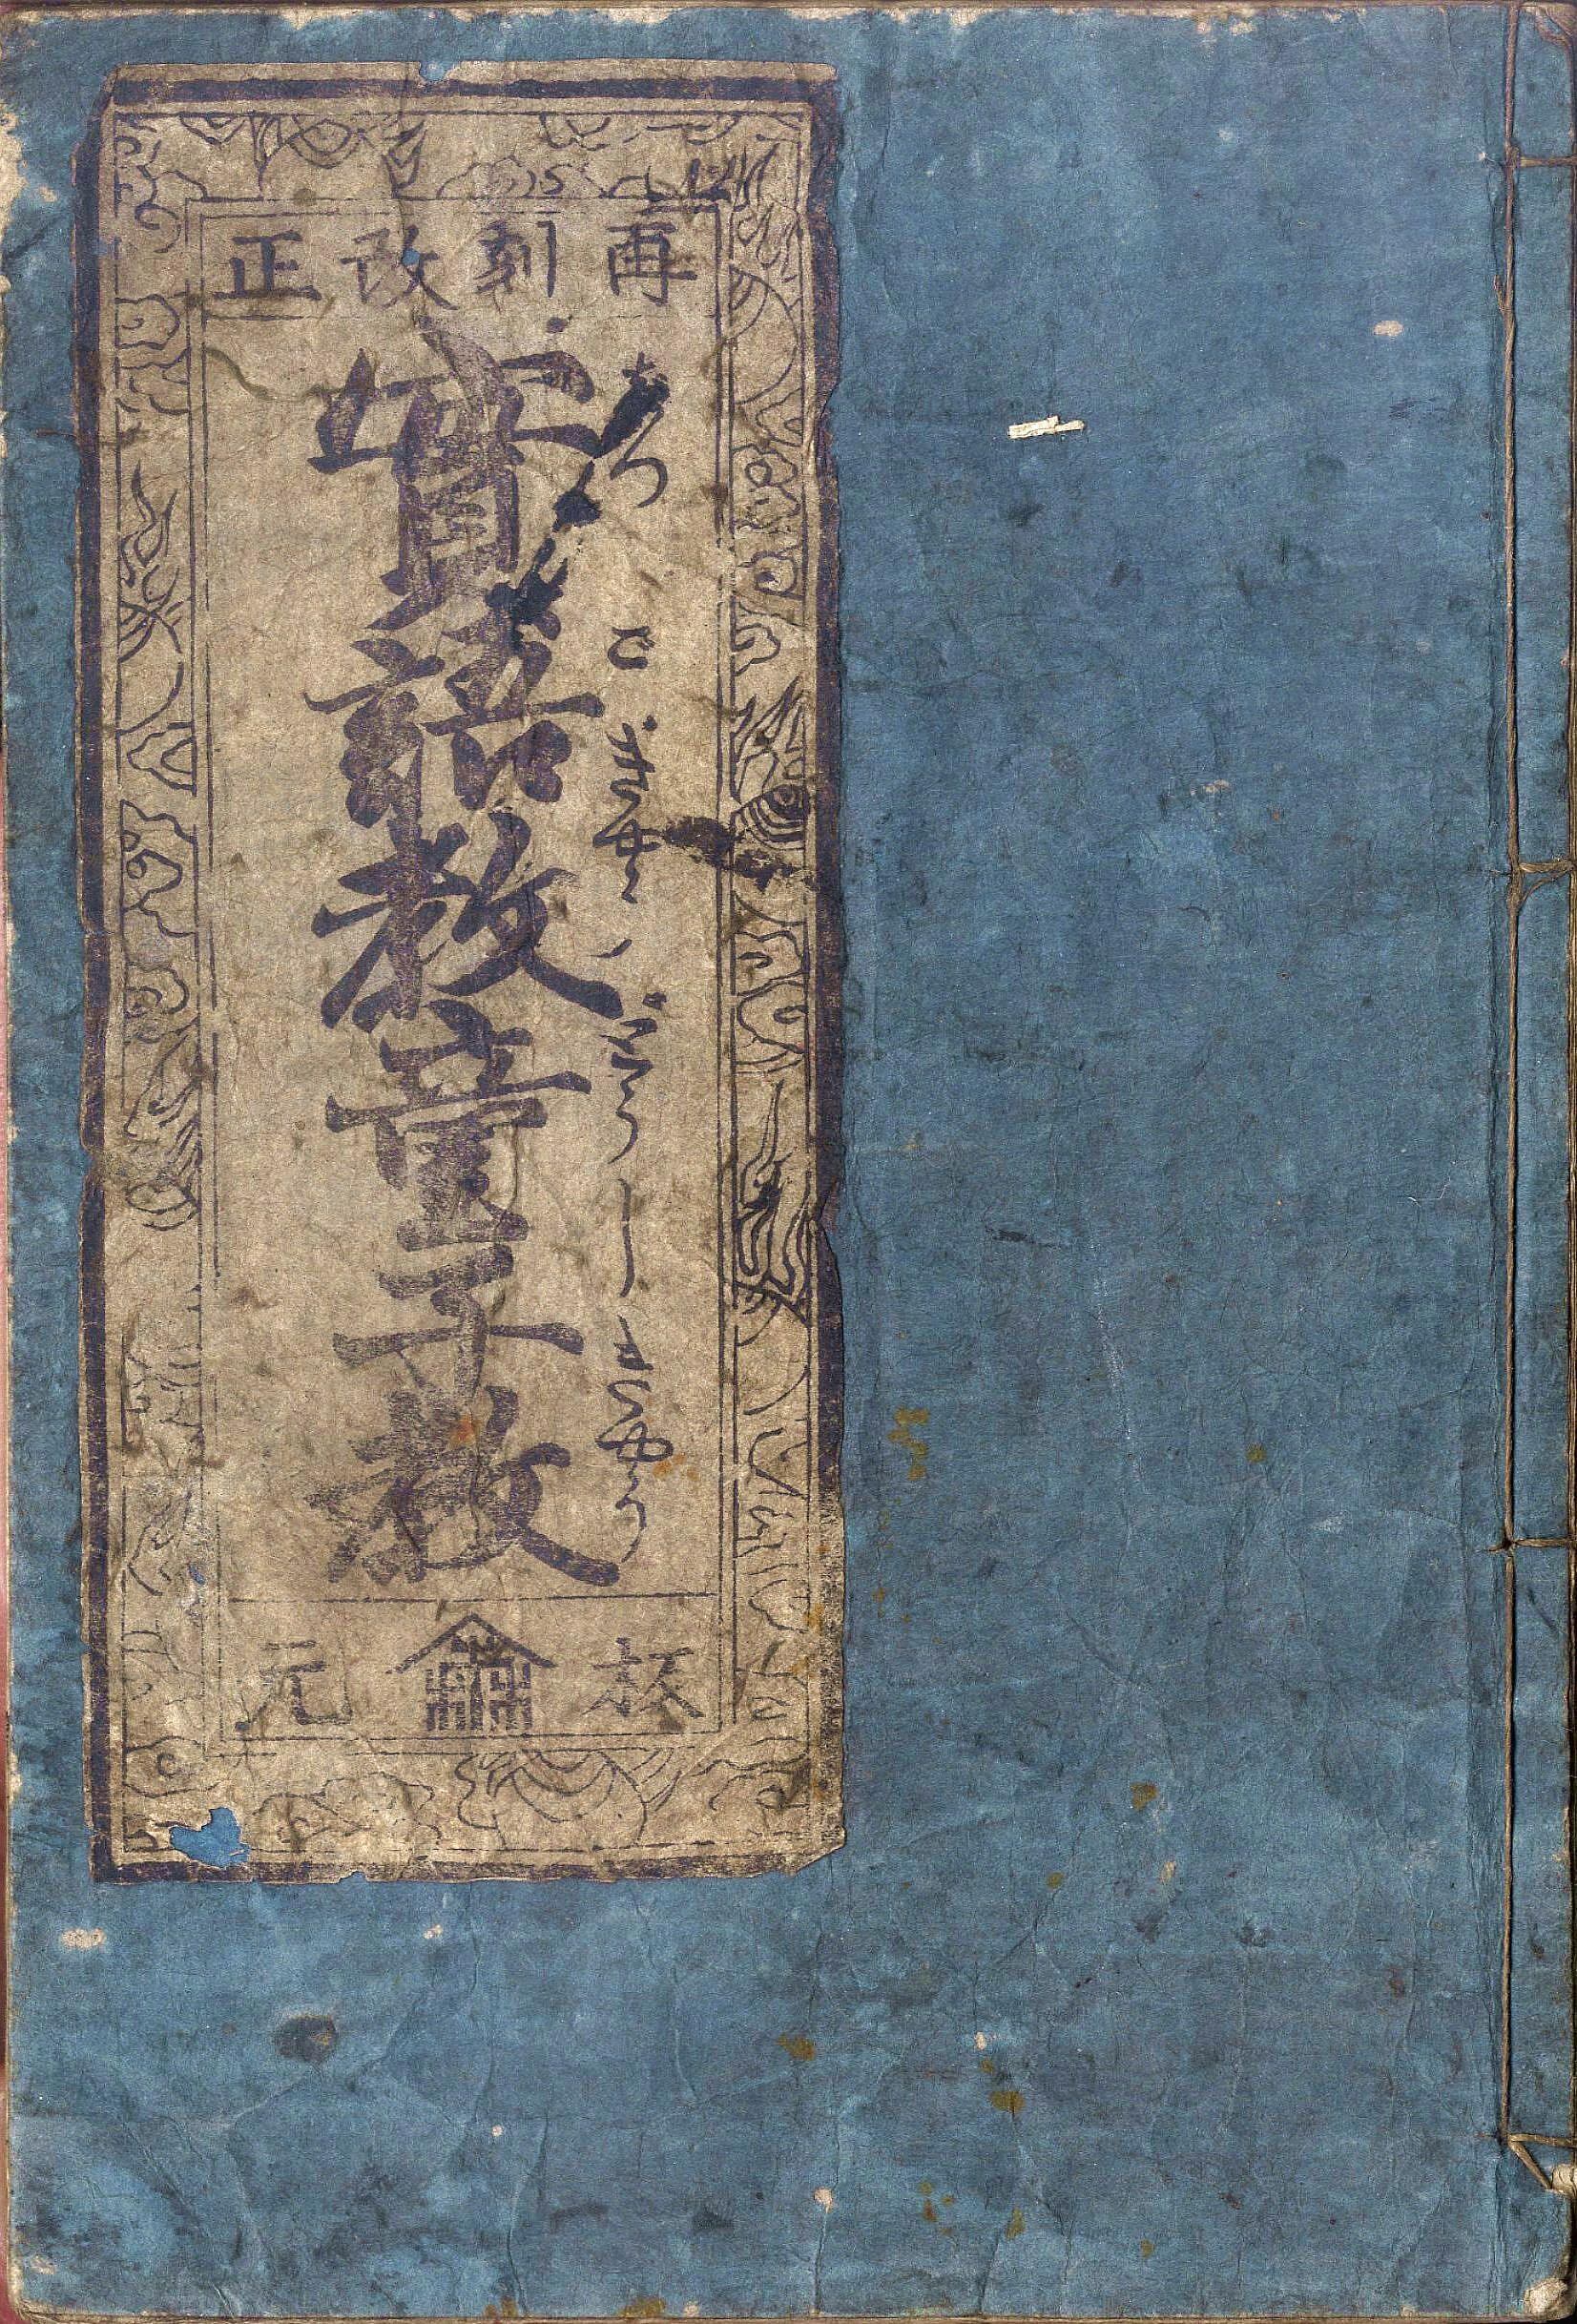 再刻改正
つごきやうどうじきやう
實語教童子教
板元